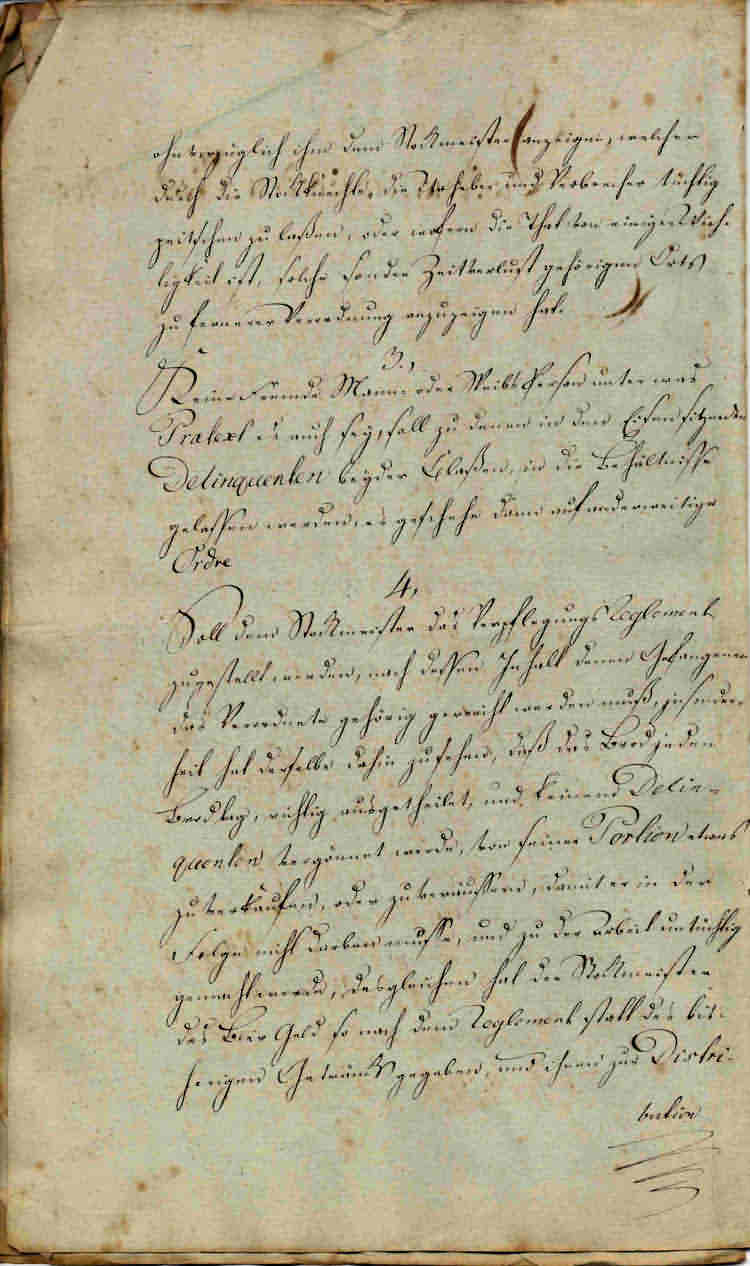 ohnverzüglich ihm dem Stockmeister anzeigen, welcher
durch die Stockknechte, die Urheber und Verbrecher tüchtig
peitschen zu laßen, oder wofern die That von einiger Wich-
tigkeit ist, solche sonder Zeitverlust gehörigen Orts
zu fernerer Verordnung anzuzeigen hat.
3.,
Keine Fremde Manns oder Weibs Person unter was
Pratext es auch sey, soll zu denen in den Eisen sitzenden
Delinquenten beyder Claßen, in die Behältnisse
gelassen werden, es geschehe dann auf anderweitige
Ordre
4,
Soll dem Stockmeister das Verpflegungs Reglement
zugestellt werden, nach dessen Inhalt denen Gefangenen
das Verordnete gehörig gereicht werden muß, insonder-
heit hat derselbe dahin zusehen, daß das Brod jeden
Brodtag, richtig ausgetheilet, und keinem Delin-
quenten vergönnet werde, von seiner Portion etwas
zu verkaufen, oder zu veräussern, damit er in der
Folge nicht darben müsse, und zu der Arbeit untüchtig
gemacht werde, desgleichen hat der Stockmeister
das Bier Geld so nach dem Reglement statt des bis-
herigen Getränks gegeben, und ihnen zur Distri-
bution